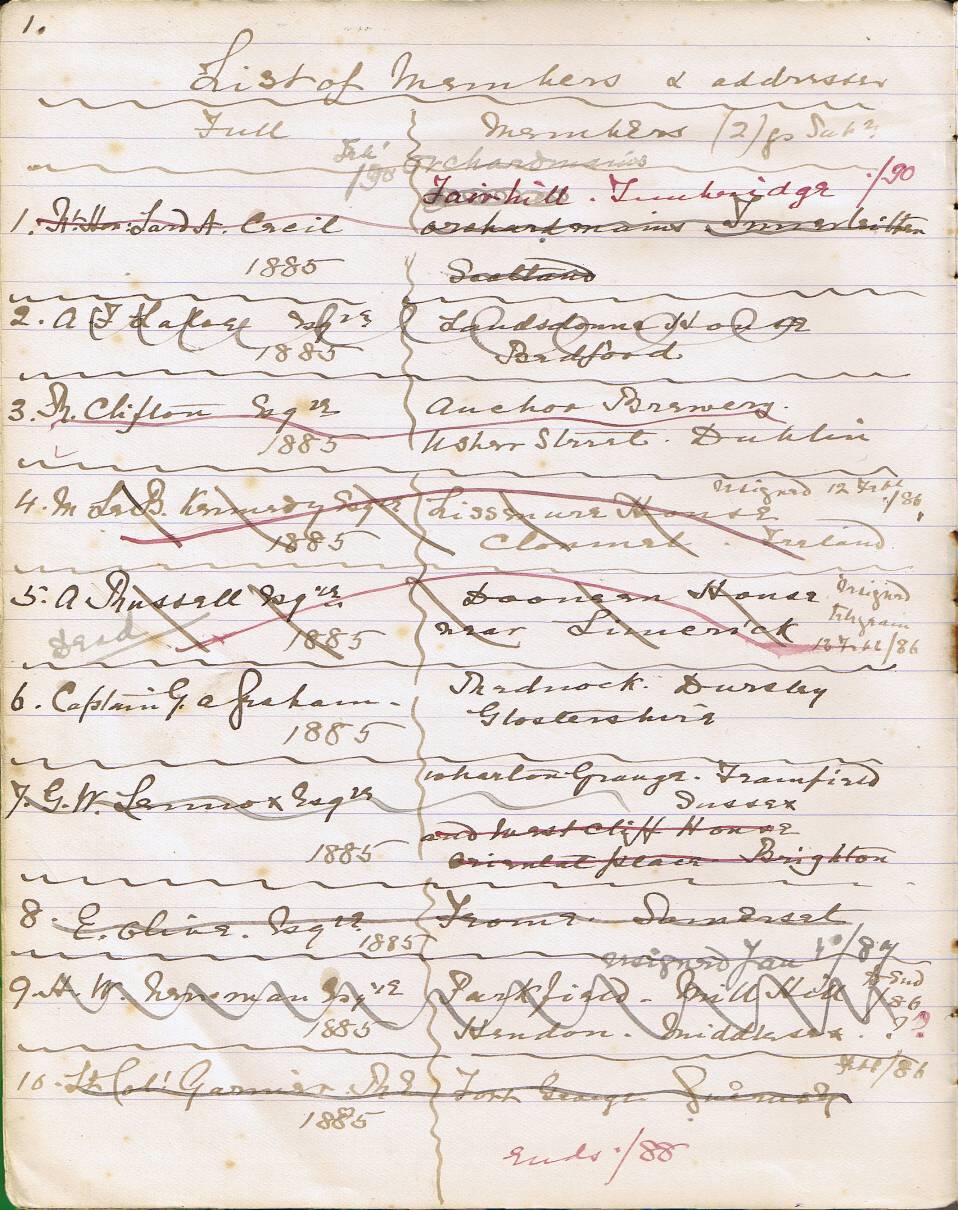 1.
List of Members & addresses
Full Members (2) gs Subn
Feb' /90 Orchardmains
Fairhill. Tunbridge ·/90
1. Rt. Hon: Lord A. Cecil Orchardmains Innerleithen
1885 Scotland
2. A F Esqre Landsdowne House
1885 Bedford
3. R. Clifton Esqre Anchor Brewery.
1885 Usher Street. Dublin
resigned 12 Febt ·/86
4. M Le B. Kennedy Esqre House
1885 Clonmel. Ireland
5. A Russell Esqre Doonean House resigned
Dead 1885 near Limerick telegram
13 Febt/86
6. Captain G. A Gresham - Rednock. Dursley
1885 Glostershire
7. G. W. Lennox Esqre Wharton Grange. Framfield
Sussex
and West Cliff House
1885 Oriental place Brighton
8. E. Clive. Esqre Frome. Somerset
1885
resigned Jan /87
9. H. W. Esqre Parkfield - Mill Hill to end 86
1885 Hendon. Middlesex. ? ?
Febt/86
10. Lt. Col' Garnier. R.E Fort George Guernsey
1885
ends ·/88